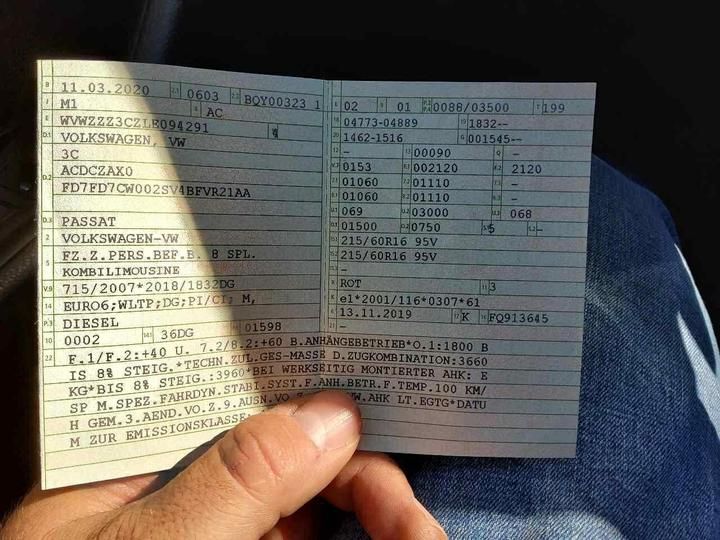 B 11.03.2020 2.1 0603 2.2 BQY00323 1
J M1 4 AC
E WVWZZZ3CZLE094291
D.1 VOLKSWAGEN, VW
3C
D.2 ACDCZAX0
FD7FD7CW002SV4BFVR21AA
D.3 PASSAT
2 VOLKSWAGEN-VW
5 FZ.Z.PERS.BEF.B. 8 SPL.
KOMBILIMOUSINE
V.9 715/2007*2018/1832DG
14 EURO6;WLTP;DG;PI/CI; M,
P.3 DIESEL
10 0002 14.1 36DG 01598
L 02 9 01 0088/03500 T 199
18 04773-04889 19 1832--
20 1462-1516 G 001545--
12 - 13 00090 Q -
V.7 0153 F.1 002120 F.2 2120
7.1 01060 7.2 01110 7.3 -
8.1 01060 8.2 01110 8.3 -
U.1 069 U.2 03000 U.3 068
O.1 01500 O.2 0750 S.1 5 S.2 -
15.1 215/60R16 95V
15.2 215/60R16 95V
15.3 -
R ROT 11 3
K e1*2001/116*0307*61
6 13.11.2019 17 K 16 FQ913645
21 -
22 F.1/F.2:+40 U. 7.2/8.2:+60 B.ANHÄNGEBETRIEB*O.1:1800 B
IS 8% STEIG.*TECHN.ZUL.GES-MASSE D.ZUGKOMBINATION:3660
KG*BIS 8% STEIG.:3960*BEI WERKSEITIG MONTIERTER AHK: E
SP M.SPEZ.FAHRDYN.STABI.SYST.F.ANH.BETR.F.TEMP.100 KM/
H GEM.3.AEND.VO.Z.9.AUSN.VO.Z. AHK LT.EGTG*DATU
M ZUR EMISSIONSKLASSE: